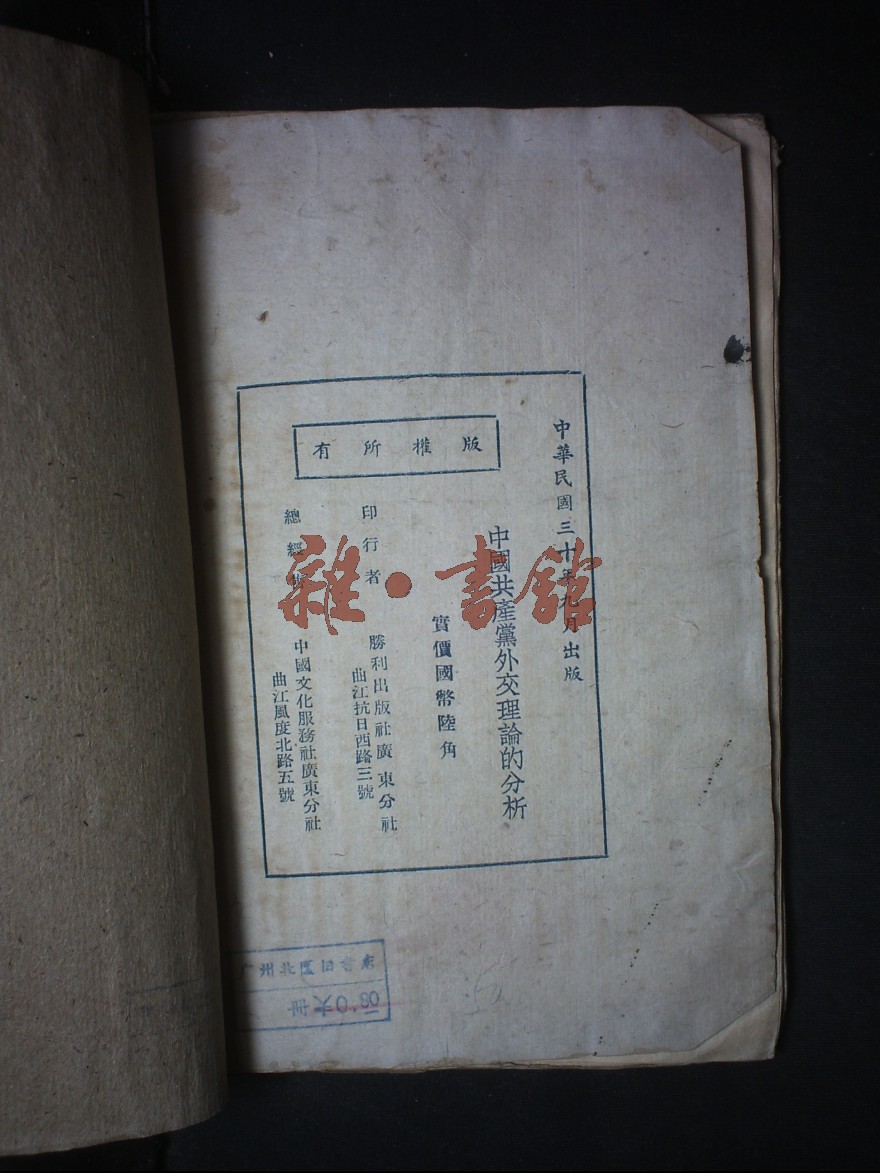 中華民國三十年九月出版
中國共產黨外交理論的分析
實價國幣陸角
版權所有
印行者
勝利出版社廣東分社
曲江抗日西路三號
總經售
中國文化服務社廣東分社
曲江風度北路五號
雜·書館
广州北區旧書店